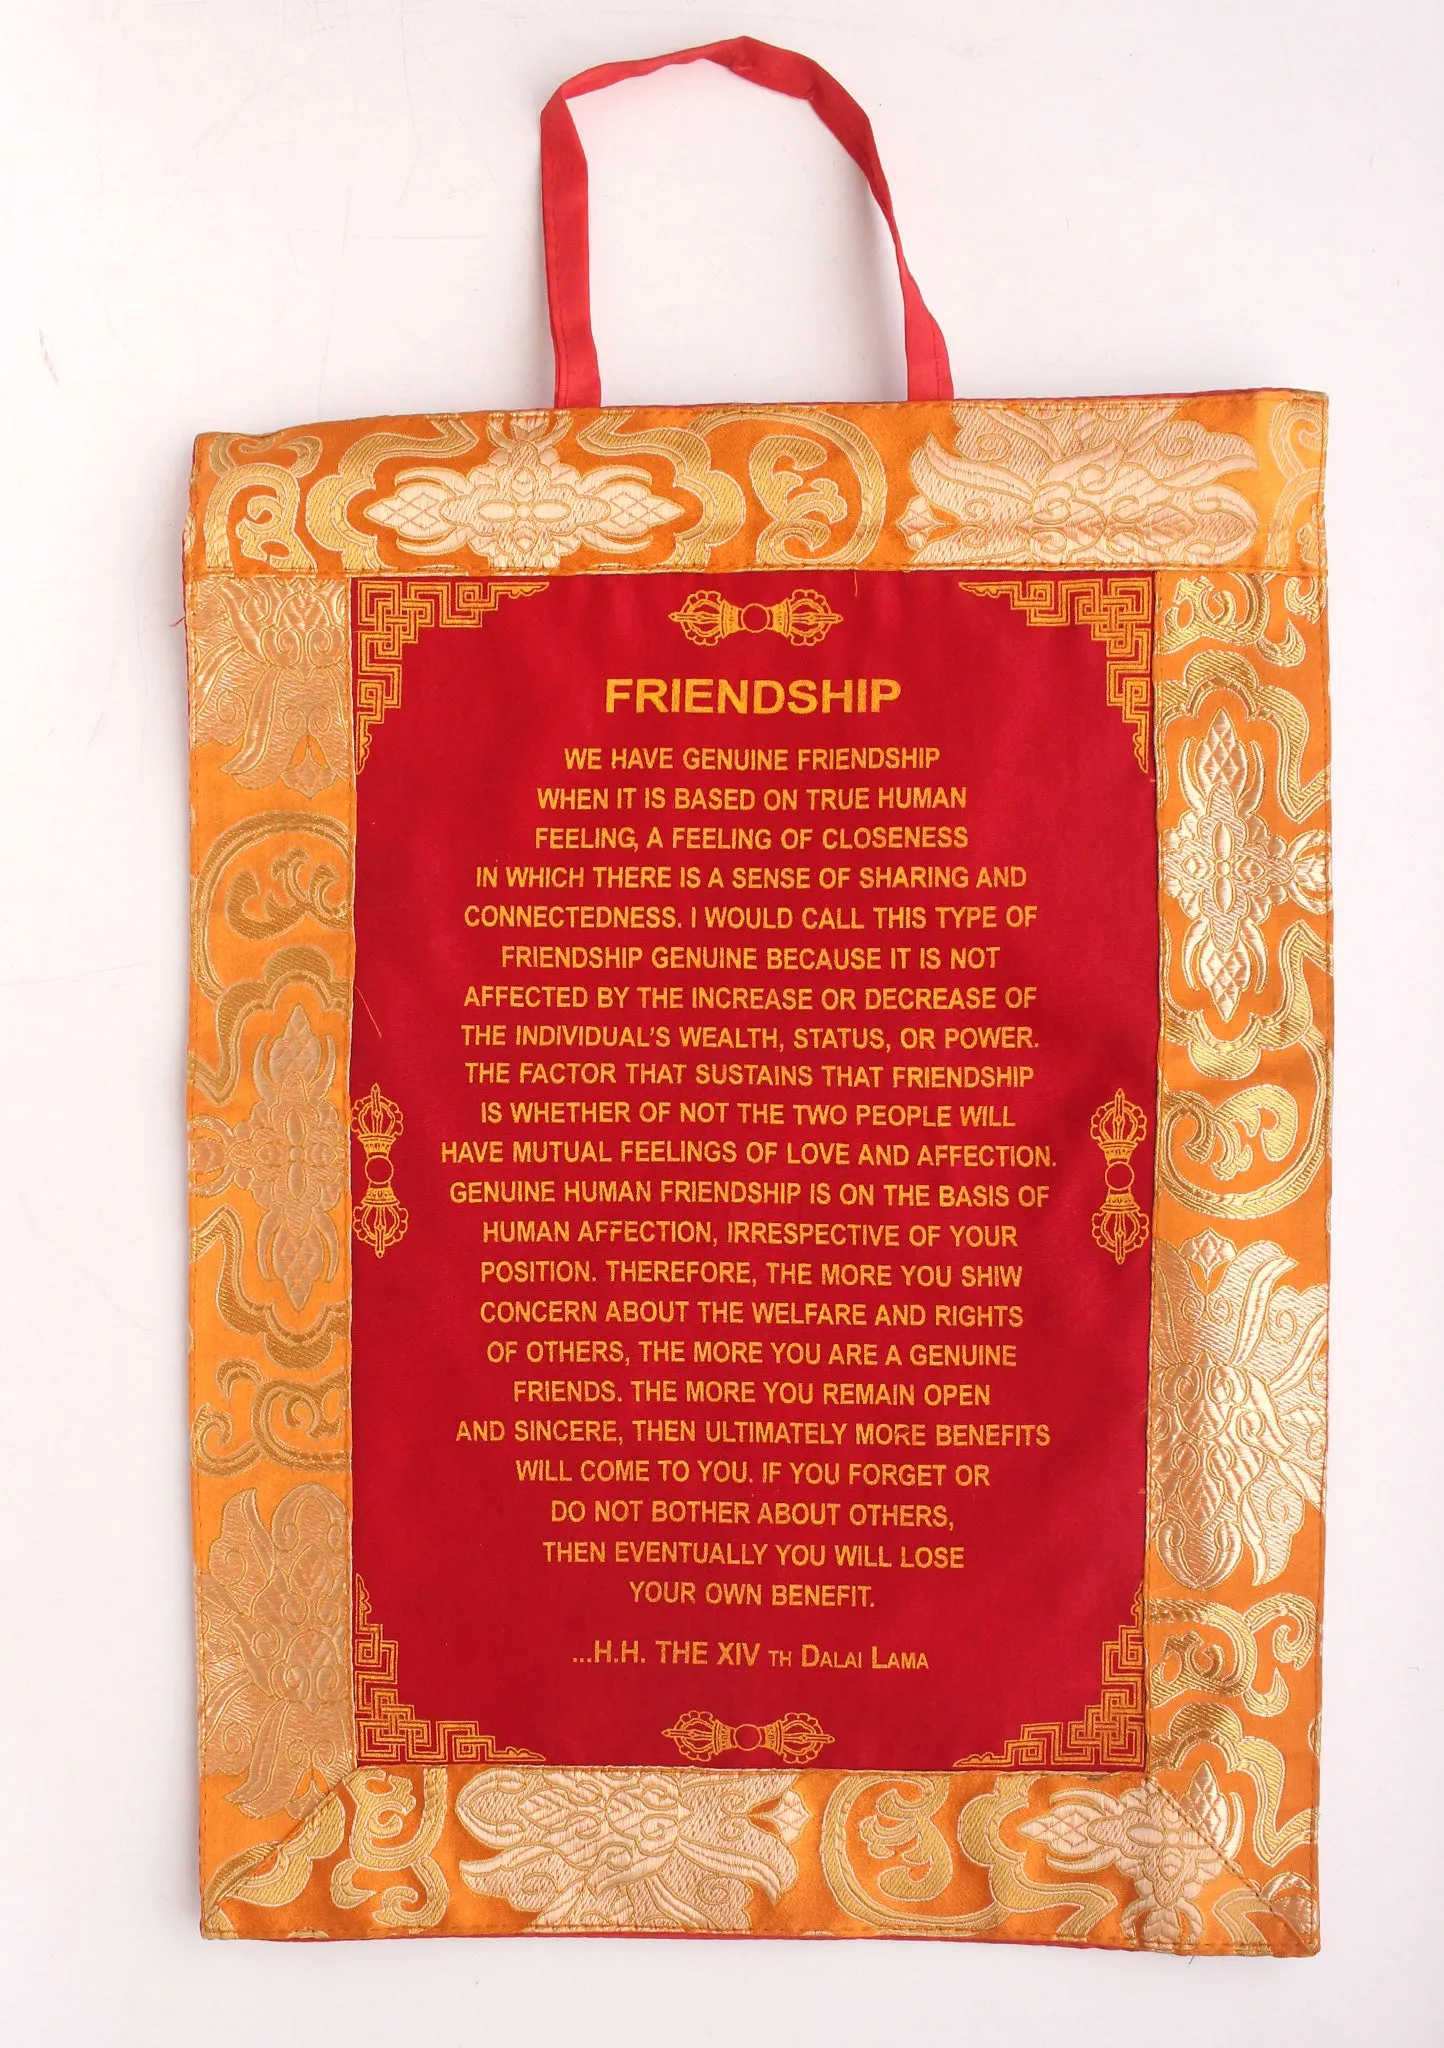 FRIENDSHIP
WE HAVE GENUINE FRIENDSHIP
WHEN IT IS BASED ON TRUE HUMAN
FEELING, A FEELING OF CLOSENESS
IN WHICH THERE IS A SENSE OF SHARING AND
CONNECTEDNESS. I WOULD CALL THIS TYPE OF
FRIENDSHIP GENUINE BECAUSE IT IS NOT
AFFECTED BY THE INCREASE OR DECREASE OF
THE INDIVIDUAL'S WEALTH, STATUS, OR POWER.
THE FACTOR THAT SUSTAINS THAT FRIENDSHIP
IS WHETHER OF NOT THE TWO PEOPLE WILL
HAVE MUTUAL FEELINGS OF LOVE AND AFFECTION.
GENUINE HUMAN FRIENDSHIP IS ON THE BASIS OF
HUMAN AFFECTION, IRRESPECTIVE OF YOUR
POSITION. THEREFORE, THE MORE YOU SHIW
CONCERN ABOUT THE WELFARE AND RIGHTS
OF OTHERS, THE MORE YOU ARE A GENUINE
FRIENDS. THE MORE YOU REMAIN OPEN
AND SINCERE, THEN ULTIMATELY MORE BENEFITS
WILL COME TO YOU. IF YOU FORGET OR
DO NOT BOTHER ABOUT OTHERS,
THEN EVENTUALLY YOU WILL LOSE
YOUR OWN BENEFIT.
...H.H. THE XIV TH DALAI LAMA